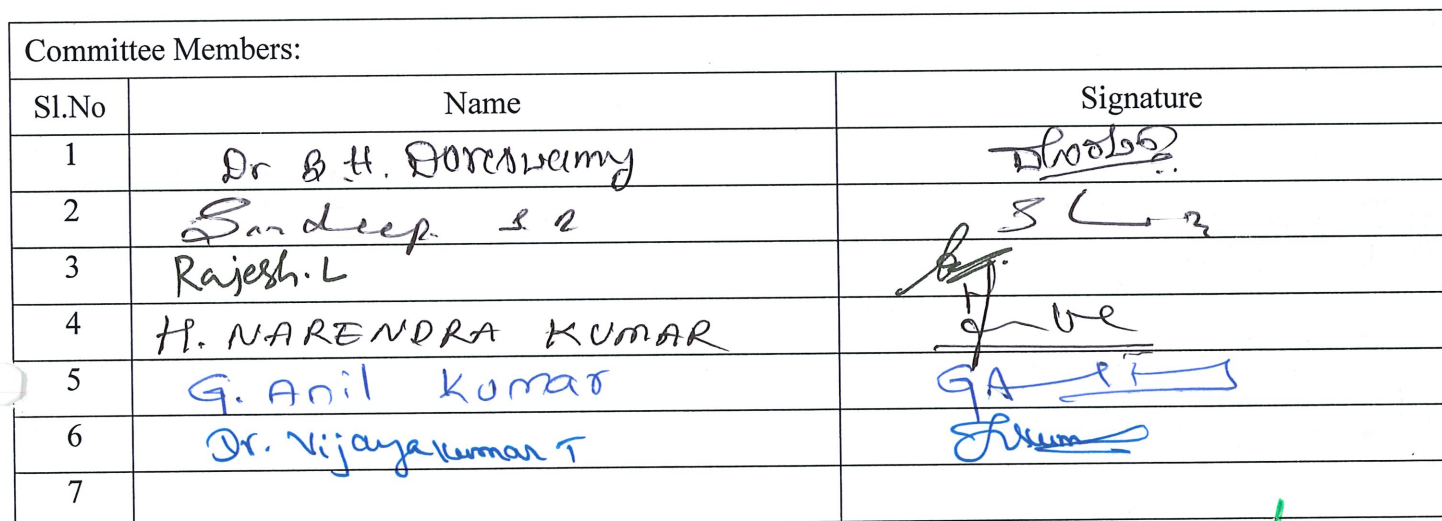 Committee Members:
Sl.No Name Signature
1 Dr B H. Doreswamy
2 Sandeep
3 Rajesh. L
4 H. NARENDRA KUMAR
5 G. Anil Kumar GA
6 Dr. Vijayakumar T
7